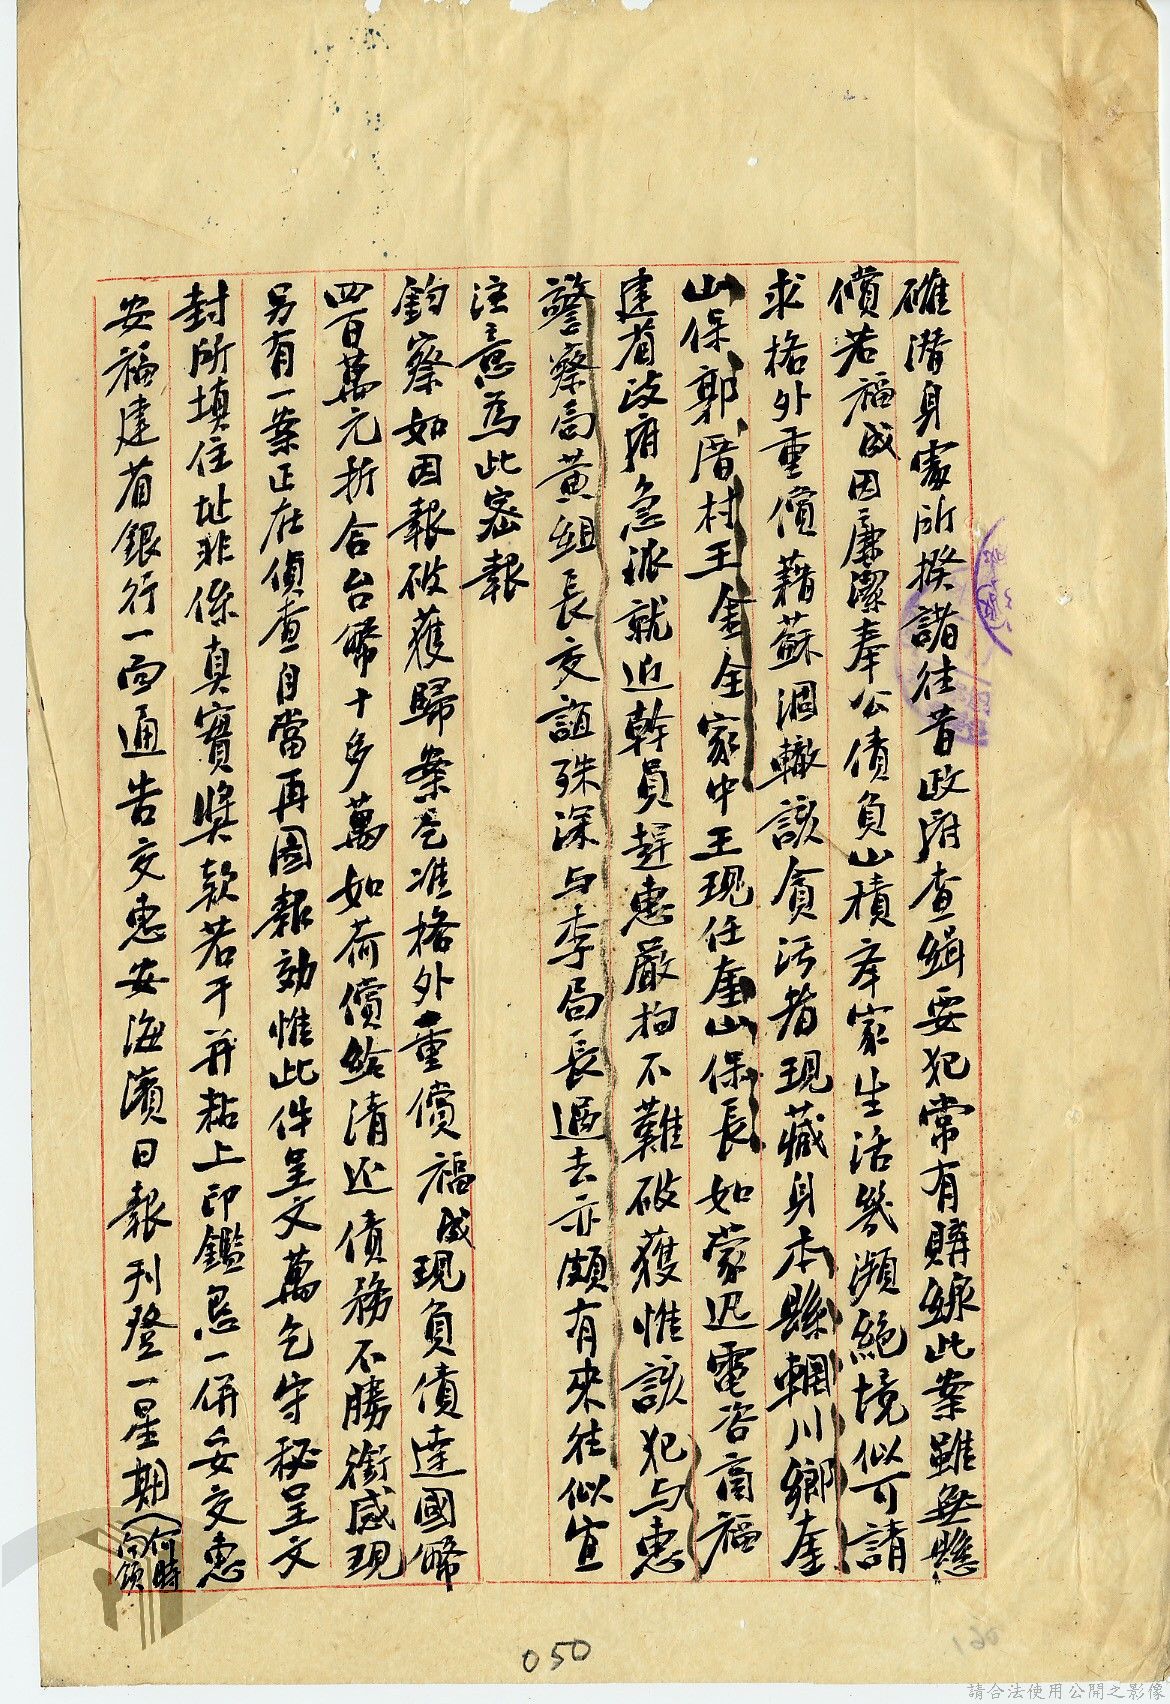 確潛身處所揆諸往昔政府查緝要犯常有購線此案雖無懸
償若福成因廉潔奉公債負山積奉家生活幾瀕絕境似可請
求格外重償藉蘇涸轍該貪污者現藏身本縣輞川鄉奎
山保郭厝村王金全家中王現任奎山保長如蒙迅電咨商福
建省政府急派就近幹員趕惠嚴拘不難破獲惟該犯与惠
警察局黃組長交誼殊深与李局長過去亦頗有來往似宜
注意為此密報
鈞察如因報破獲歸案乞准格外重償福成現負債達國幣
四百萬元折合台幣十多萬如荷償給清还債務不勝銜感現
另有一案正在偵查自當再圖報効惟此件呈文萬乞守秘呈文
封所填住址非係真實獎款若干并粘上印鑑息一併妥交惠
安福建省銀行一面通告交惠安海濱日報刊登一星期(何時
向領
050
請合法使用公開之影像